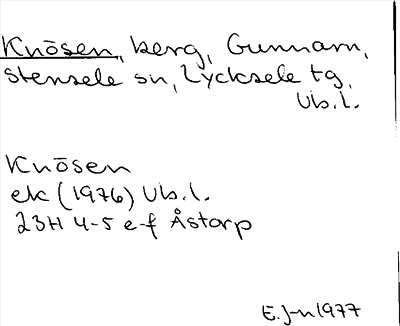 Knösen, berg, Gunnarn,
Stensele sn, Lycksele tg,
Vb.l.
Knösen
ek (1976) Vb.l.
23H 4-5 e-f Åstorp
E.J-n 1977